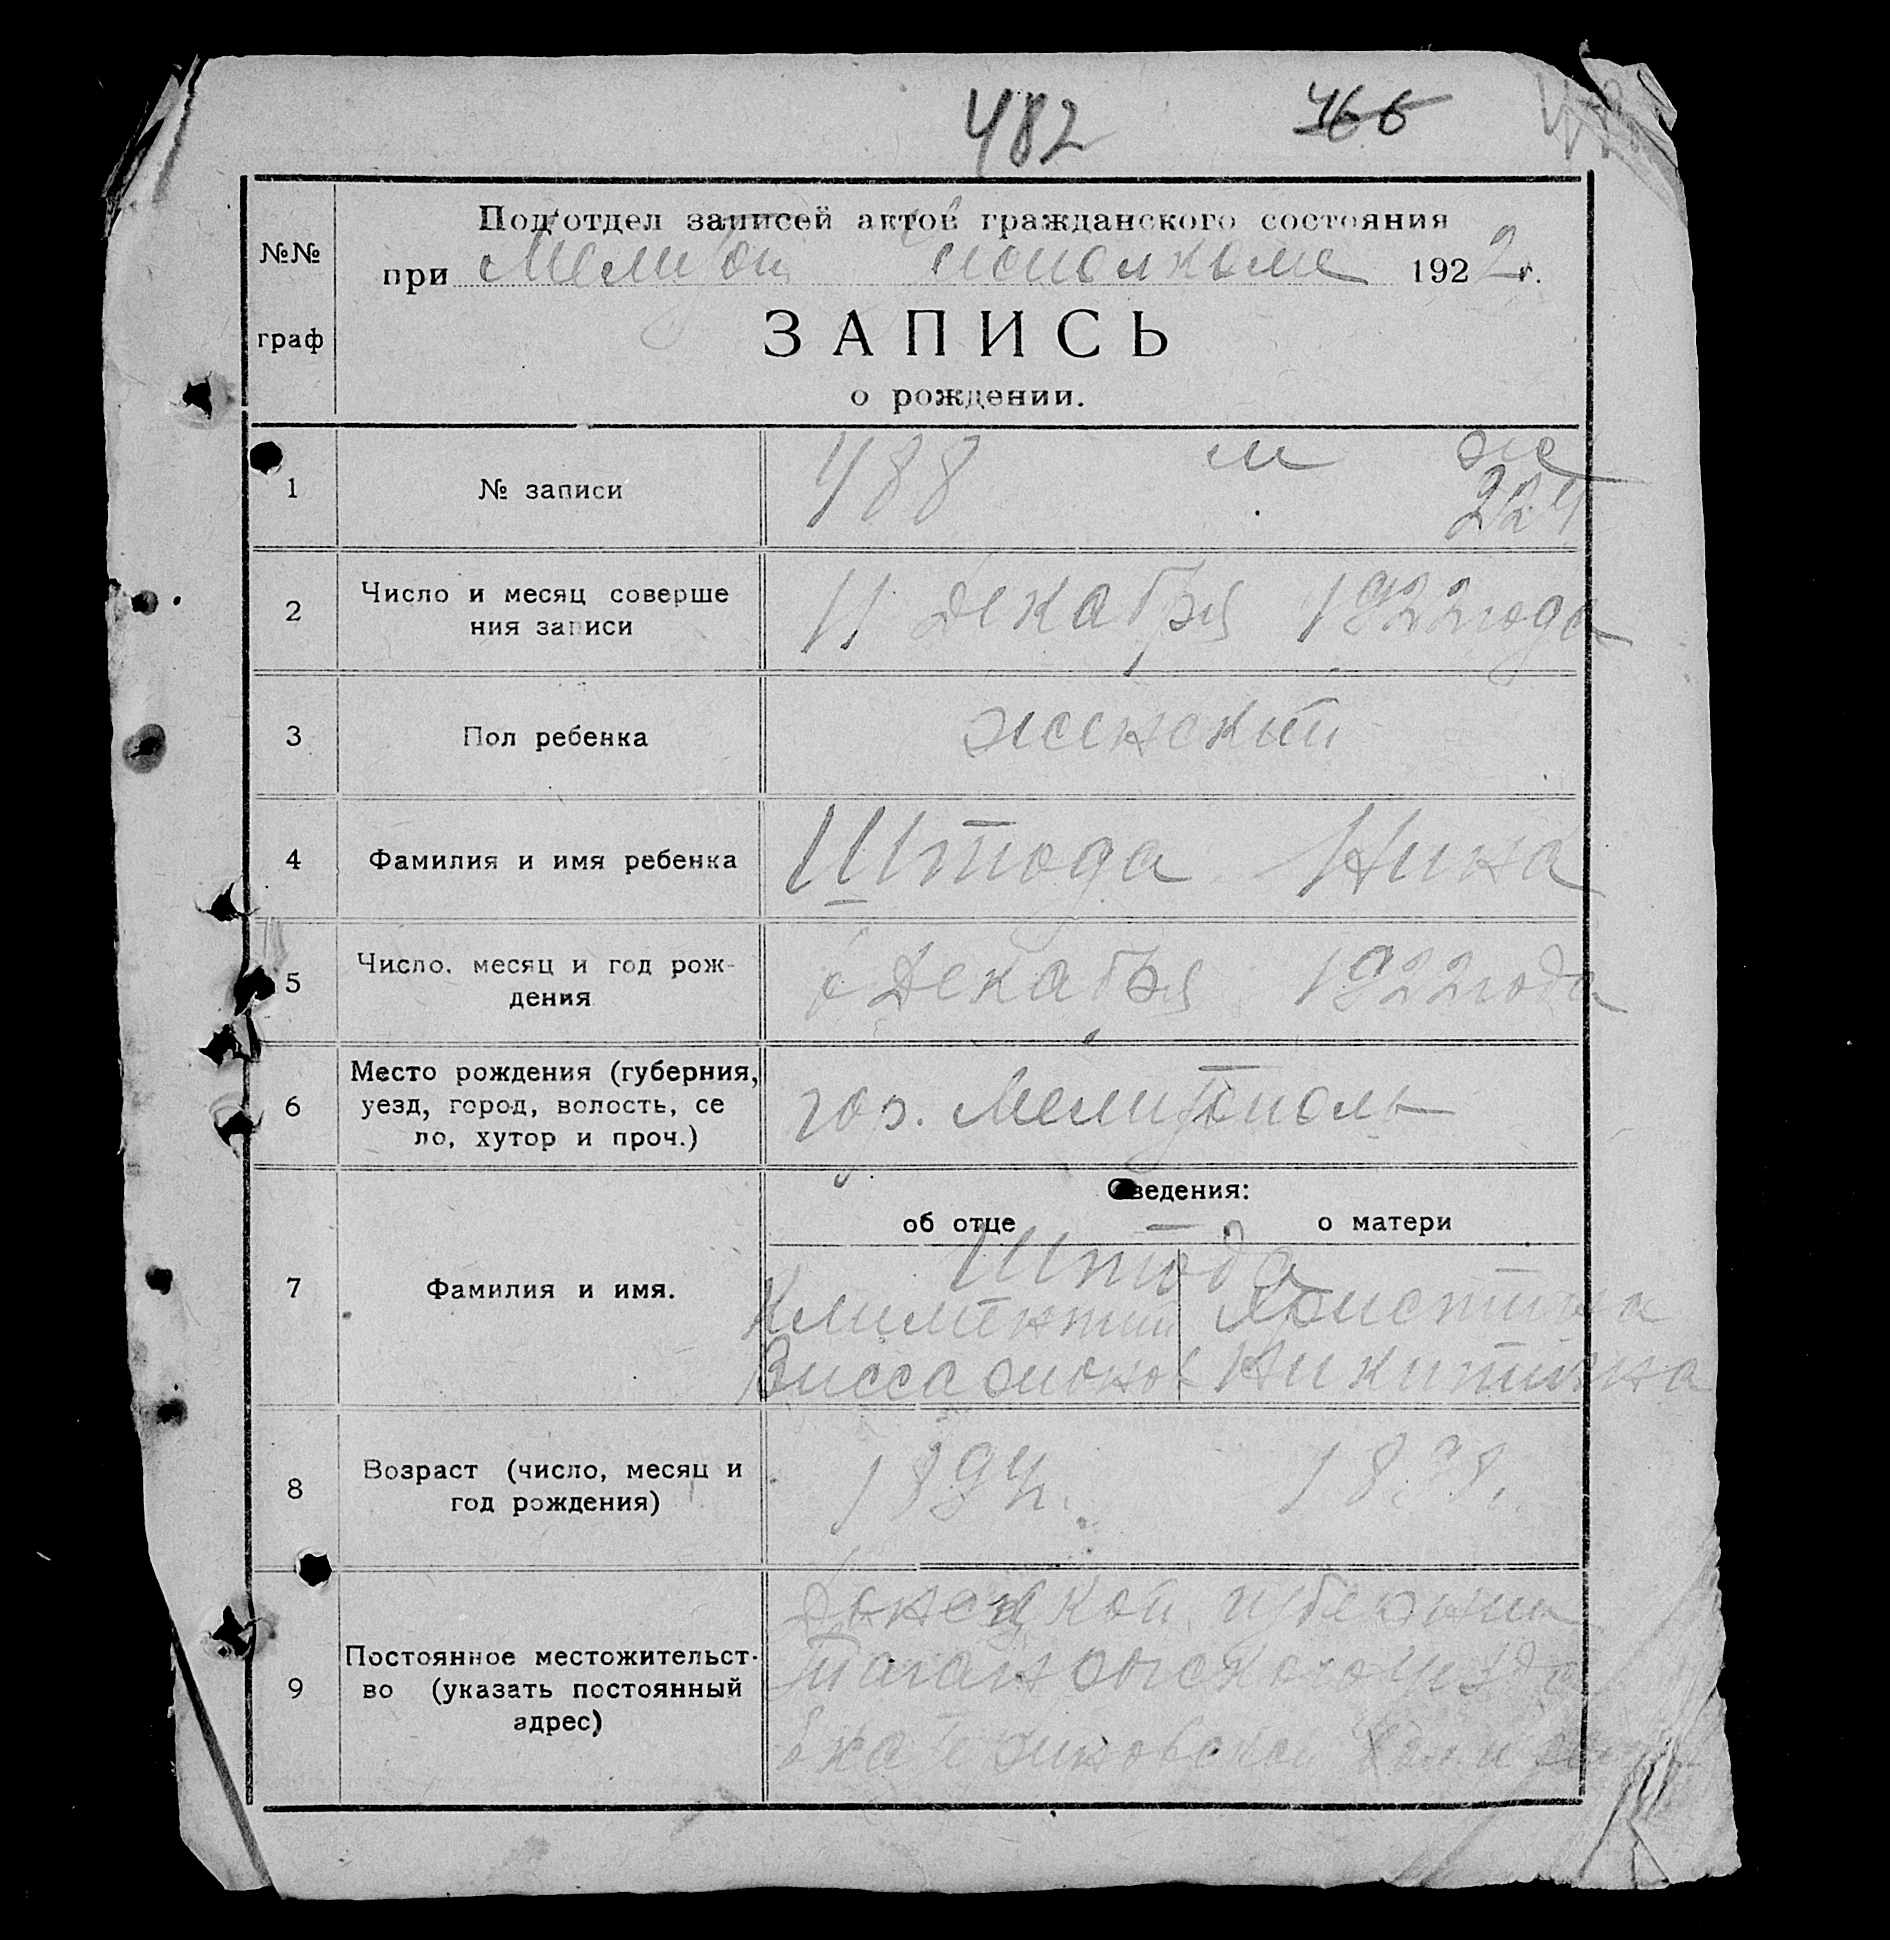 482 466
№№ граф
Под'отдел записей актов гражданского состояния
при Мелитоп. исполкоме 1922 г.
ЗАПИСЬ
о рождении.
1 № записи 488 м ж
224
2 Число и месяц соверше
ния записи 11 Декабря 1922 года
3 Пол ребенка женский
4 Фамилия и имя ребенка Штода Нина
5 Число, месяц и год рож-
дения 6 Декабря 1922 года
6 Место рождения (губерния,
уезд, город, волость, се
ло, хутор и проч.) гор. Мелитополь
Сведения:
об отце о матери
7 Фамилия и имя. Штода
Климентий Христина
Виссарионов Никитична
8 Возраст (число, месяц и
год рождения) 1894.
9 Постоянное местожительст-
во (указать постоянный
адрес) Донецкой губернии
Таганрогского уезда